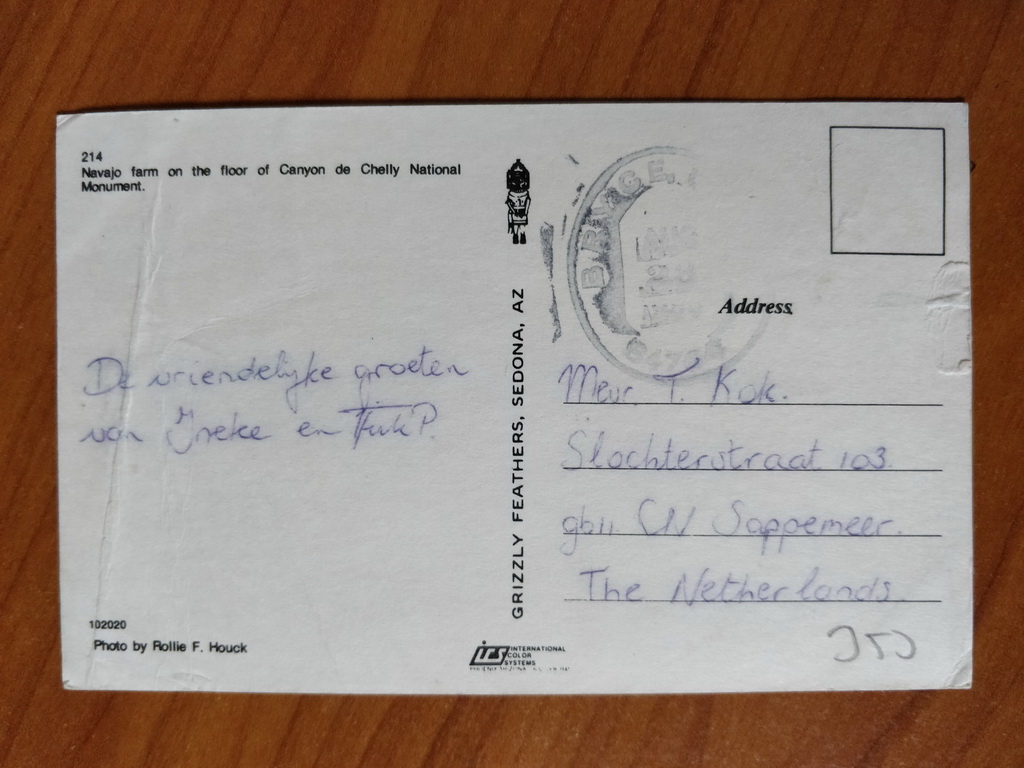 214
Navajo farm on the floor of Canyon de Chelly National
Monument.
De vriendelijke groeten
van Ineke en
102020
Photo by Rollie F. Houck
GRIZZLY FEATHERS, SEDONA, AZ
irs INTERNATIONAL
COLOR
SYSTEMS
BRYCE
AUG
Address
Mevr. T. Kok.
Slochterstraat 103
9611 CN Sappemeer.
The Netherlands.